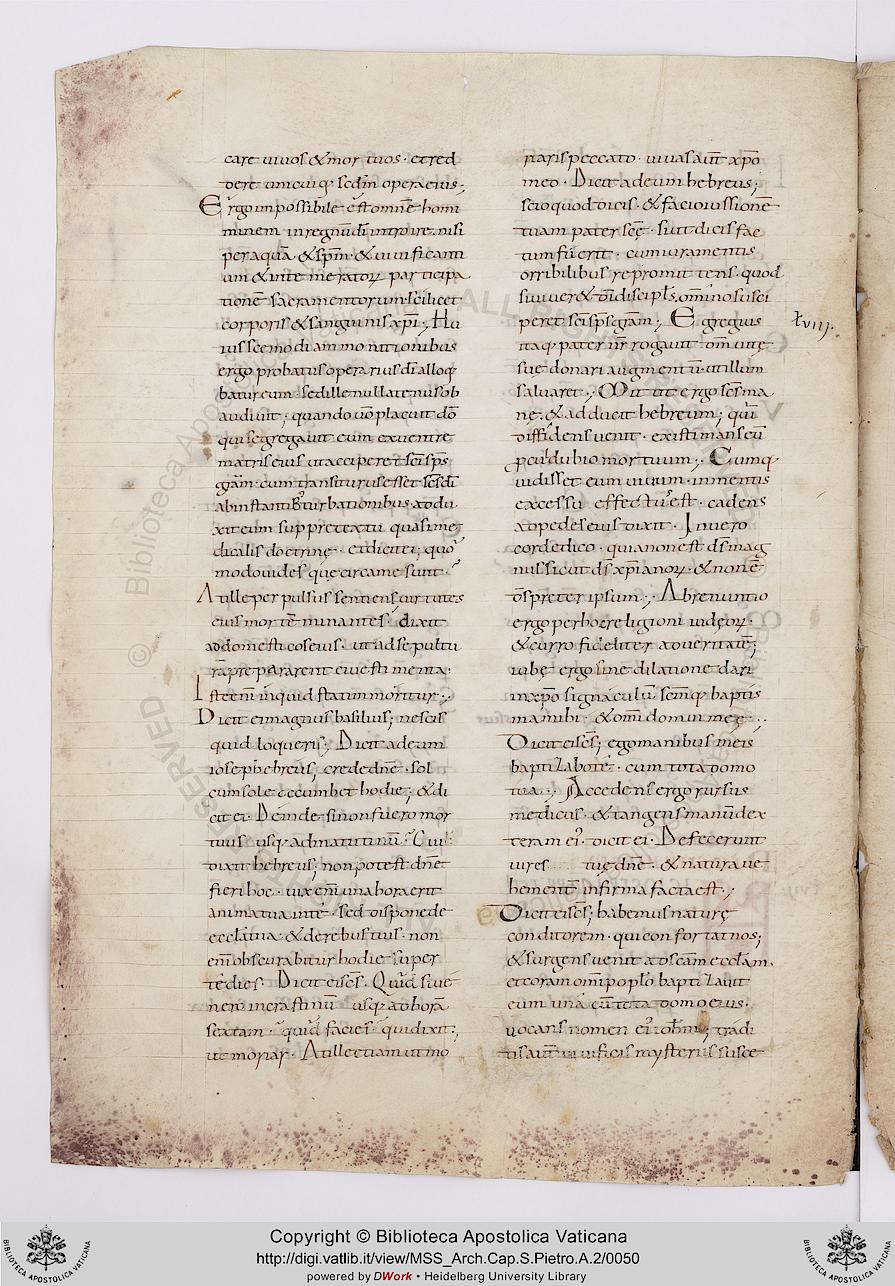 care uiuos & mortuos · et red
dere unicuiq; sedm opera eius;
Ergo impossibile ÷ est omne homi
minem in regnu di introire · nisi
per aqua & spm · & uiuificanti
um & intemeratorum participa
tione sacramentorum · scilicet
corporis & sanguinis xpi; Hu
iuscemodi ammonitionibus
ergo probatus operarius di alloq
batur eum · sed ille nullatenus ob
audiuit; quando uo placuit do
qui segregauit eum ex uentre
matris eius ut acciperet sci sps
gram · cum transiturus esset scs di
ab instantib; turbationibus · addu
xit eum sup pretextu quasi me
dicalis doctrine · et dicit ei; quo
modo uides que circa me sunt ·
At ille per pulsus sentiens uirtutes
eius morte minantes · dixit
ad domesticos eius · ut ad sepultu
ra prepararent ei uestimenta ·
Iste eni inquid statim moritur;
Dicit ei magnus basilius; nescis
quid loqueris; Dicit ad eum
ioseph hebreus; crede dne · sol
cum sole occumbet hodie; & di
cit ei · Deinde si non fuero mor
tuus usq; ad matutinu · Cui
dixit hebreus; non potest dne
fieri hoc · uix eni una hora erit
anima tua in te · sed dispone de
ecclia tua · & de rebus tuis · non
eni obscurabitur hodie super
te dies · Dicit ei scs · Quid si ue
nero in crastinu usq; ad hora
sextam · quid facies · qui dixit;
ut moriar · At ille etiam ut mo
riaris peccato · uiuas aut xpo
meo · Dicit ad eum hebreus;
scio quod dicis · & facio iussione
tuam pater sce · sicut dicis fac
tum fuerit · cum iuramentis
orribilibus repromittens · quod
si uiuer& di discipls · omino susci
perit sci sps gram; Egregius
itaq; pater nr rogauit dm uite
sue donari augmentu · ut illum
saluaret; Mittit ergo scs ma
ne · & adducit hebreum; qui
diffidens uenit · existimans eu
procul dubio mortuum; Cumq;
uidisset eum uiuum · in mentis
excessu effectus est · cadens
ad pedes eius dixit · In uero
corde dico · quia non est ds mag
nus sicut ds xpianorum · & non e
ds preter ipsum; Abrenuntio
ergo per hoc religioni iudeorum ·
& curro fideliter ad ueritate;
iube ergo sine dilatione dari
in xpo signaculu semq; baptis
ma mihi · & omi domui mee ..
Dicit ei scs; ego manibus meis
baptizabo te · cum tota domo
tua; Accedens ergo rursus
medicus · & tangens manu dex
teram eius · dicit ei · Defecerunt
uires tue dne · & natura ue
hementer infirma facta est;
Dicit ei scs; habemus nature
conditorem · qui confortat nos;
& surgens uenit ad scam ecclam ·
et coram omi poplo baptizauit
eum una cu tota domo eius ·
uocans nomen eius iohm; tradi
tis aut uiuificis mysteriis susce
xlviij.
Copyright © Biblioteca Apostolica Vaticana
http://digi.vatlib.it/view/MSS_Arch.Cap.S.Pietro.A.2/0050
powered by DWork • Heidelberg University Library